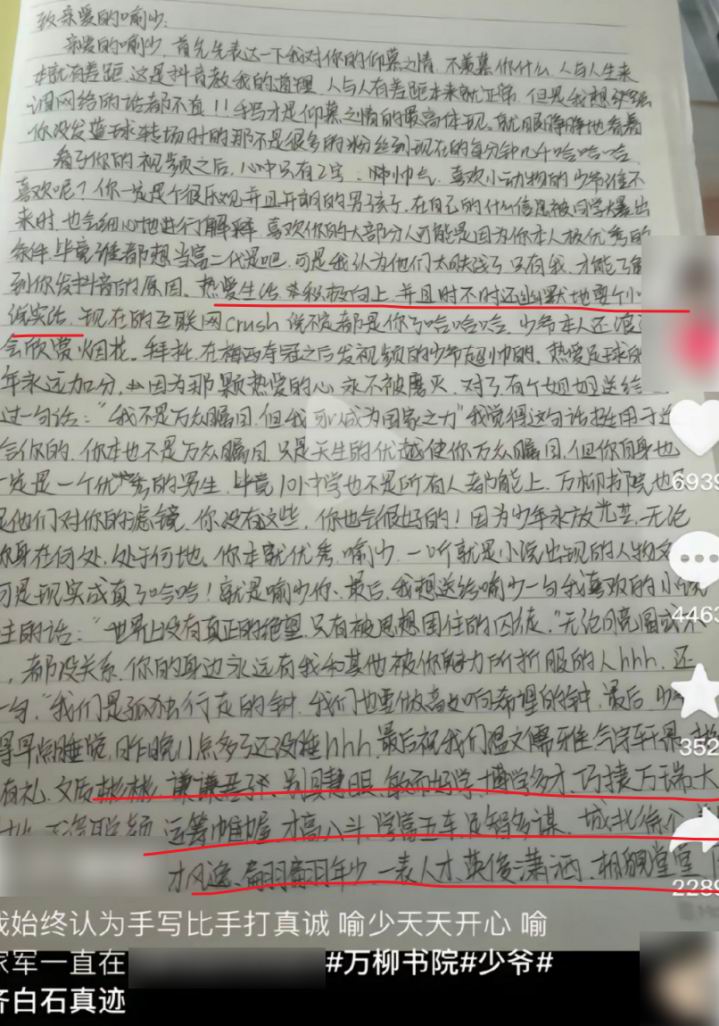 致亲爱的喻少:
亲爱的喻少,首先先表达一下我对你的仰慕之情,不羡慕你什么,人与人生来
就有差距,这是抖音教我的道理,人与人有差距本来就正常,但是我想
网络的话都不真!!手写才是仰慕之情的最高体现,就服静静地看着
你没发篮球转场时的那不是很多的粉丝到现在的每分钟几千哈哈哈,
看了你的视频之后,心中只有2字:帅帅气,喜欢小动物的少年谁不
喜欢呢?你一定是个很乐观并且开朗的男孩子,在自己的什么信息被同学大爆出
来时,也会细心地进行解释,喜欢你的大部分人可能是因为你本人极优秀的
条件,毕竟谁都想当富二代是吧,可是我认为他们太肤浅了,只有我,才能了解
到你发抖音的原因。热爱生活,积极向上,并且时不时还幽默地耍个小
说实话,现在的互联网crush说不定都是你了哈哈哈,少爷本人还浪
会欣赏烟花。拜托,在梅西夺冠之后发视频的少年超帅的,热爱足球的
年永远加分,因为那颗热爱的心永不被磨灭,对了有个姐姐送给
过一句话:“我不是万众瞩目,但我可以成为国家之力”我觉得这句话挺用于
你的,你本也不是万众瞩目,只是天生的优越使你万众瞩目,但你自身也
定是一个优秀的男生,毕竟101中学也不是所有人都能上,万柳书院也
是他们对你的滤镜,你没有这些,你也会很好的!因为少年永放光芒,无论
你身在何处,处于何地,你本就优秀,喻少,一听就是小说出现的人物
可是现实成真了哈哈!就是喻少你、最后,我想送给喻少一句我喜欢的小说
主的话:“世界上没有真正的绝望,只有被思想困住的囚徒,”无论
,都没关系,你的身边永远有我和其他被你魅力所折服的人hhh,还
一句,“我们是孤独行走的钟,我们也要做高处响希望的钟,最后,少爷
得早点睡觉,昨晚11点多了还没睡hhh,最后祝我们温文儒雅,气宇轩昂,
有礼,文质彬彬,谦谦君子,别具慧眼,敏而好学,博学多才,巧捷万端,大
运筹帷幄,才高八斗,学富五车,足智多谋,城北徐公,
才风逸、翩翩年少,一表人才,英俊潇洒,相貌堂堂
6939
4463
352
2289
我始终认为手写比手打真诚 喻少天天开心 喻
家军一直在 #万柳书院#少爷#
齐白石真迹